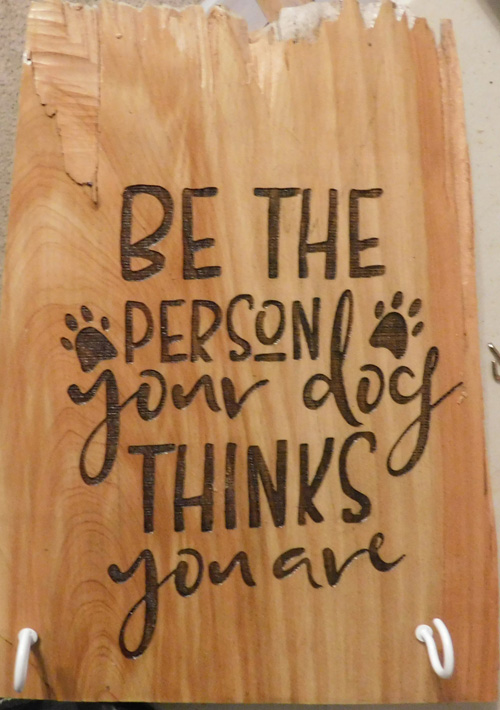 BE THE
PERSON
your dog
THINKS
you are